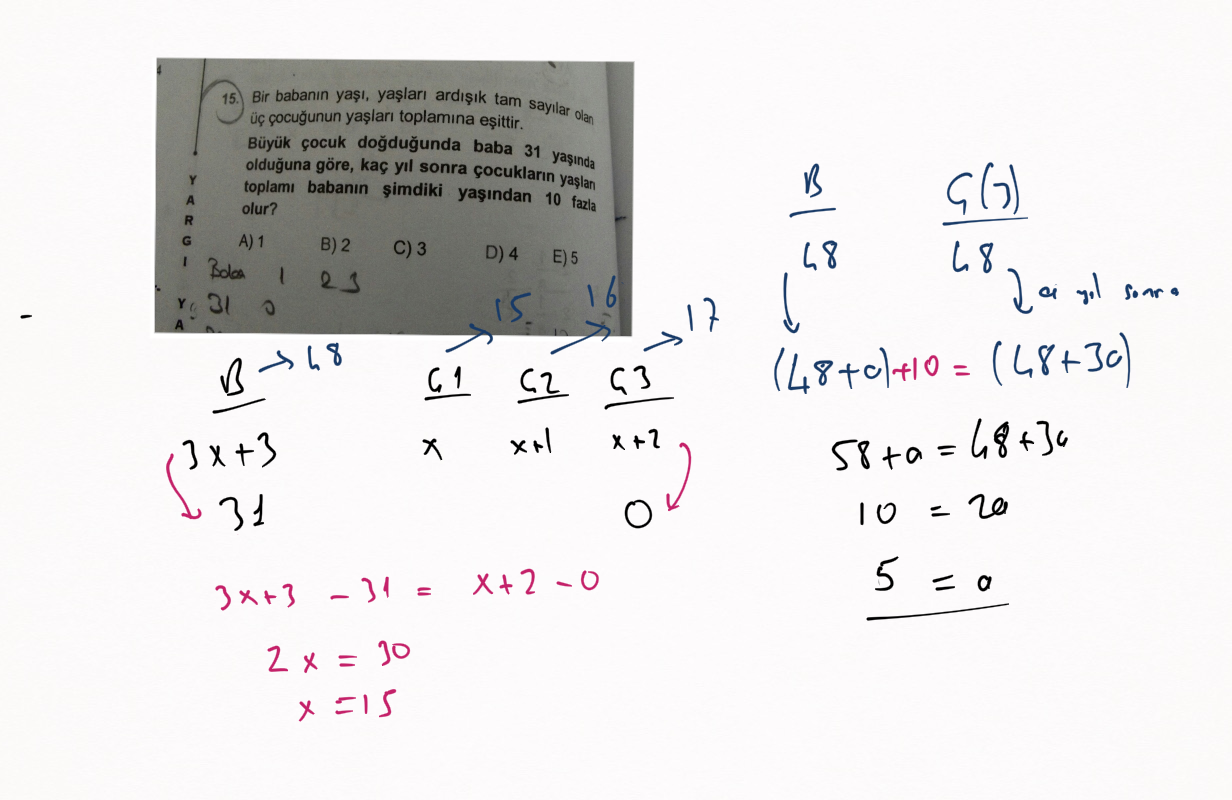 15. Bir babanın yaşı, yaşları ardışık tam sayılar olan
üç çocuğunun yaşları toplamına eşittir.
Büyük çocuk doğduğunda baba 31 yaşında
olduğuna göre, kaç yıl sonra çocukların yaşları
toplamı babanın şimdiki yaşından 10 fazla
olur?
A) 1 B) 2 C) 3 D) 4 E) 5
Y
A
R
G
I
Y
A
1 2 3
31 0
B → 48
Ç1 → 15
Ç2 → 16
Ç3 → 17
3x+3 x x+1 x+2
31 0
3x+3 - 31 = x+2 - 0
2x = 30
x = 15
B Ç(3)
48 48
a yıl sonra
(48+a)+10 = (48+3a)
58+a = 48+3a
10 = 2a
5 = a